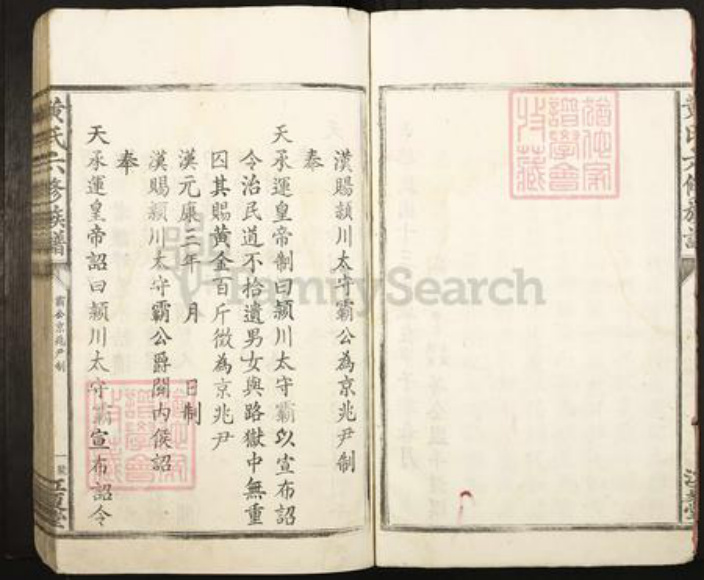 漢賜穎川太守霸公為京兆尹制
奉
天承運皇帝制曰穎川太守霸以宣布詔
令治民道不拾遺男女與路獄中無重
囚其賜黃金百斤徵為京兆尹
漢元康三年 月 日制
漢賜穎川太守霸公爵關內侯詔
奉
天承運皇帝詔曰穎川太守霸宣布詔令
黃氏六修族譜
霸公京兆尹制
一號
江夏堂
FamilySearch